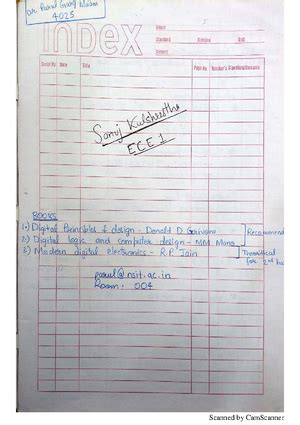 Dr. Parul Garg Maam
4025
Index
Name
Standard Division Roll
Subject
Serial No. Date Title Page No. Teacher's Sign/Remarks
Kulshrestha
ECE 1
BOOKS
1.) Digital Principles & design - Donald D Givone
2.) Digital logic and computer design - MM Mano
3.) Modern digital electronics - R.P. Jain
Recommend
Theoritical
for 2nd
parul@nsit.ac.in
Room: 004
Scanned by CamScanner